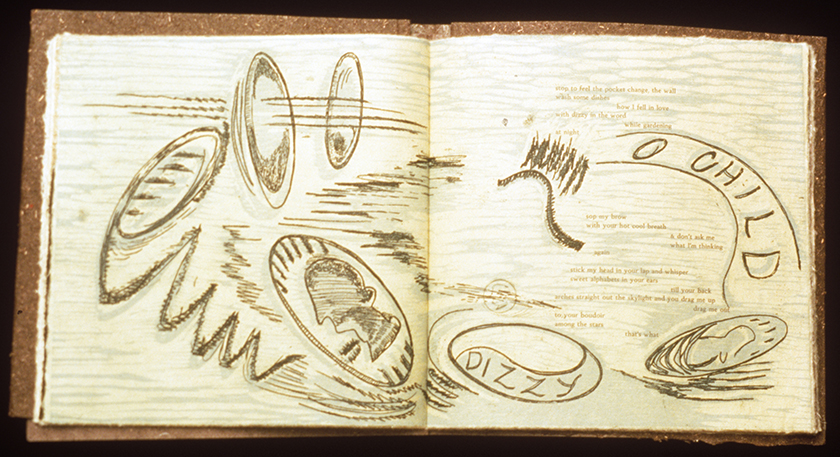 stop to feel the pocket change, the wall
wash some dishes
how I fell in love
with dizzy in the word
when gardening
at night
O CHILD
sop my brow
with your hot cool breath
& don't ask me
what I'm thinking
again
stick my head in your lap and whisper
sweet alphabets in your ears
till your back
arches straight out the skylight and you drag me up
drag me out
to your boudoir
among the stars
that's what
DIZZY